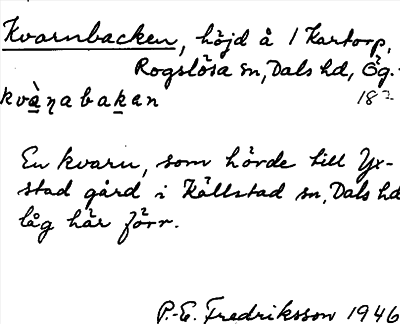 Kvarnbacken, höjd å 1 Kartorp,
Rogslösa sn, Dals hd, Ög.
kvànabakan 18²
En kvarn, som hörde till Yx-
stad gård i Källstad sn, Dals hd
låg här förr.
P.-E. Fredriksson 1946